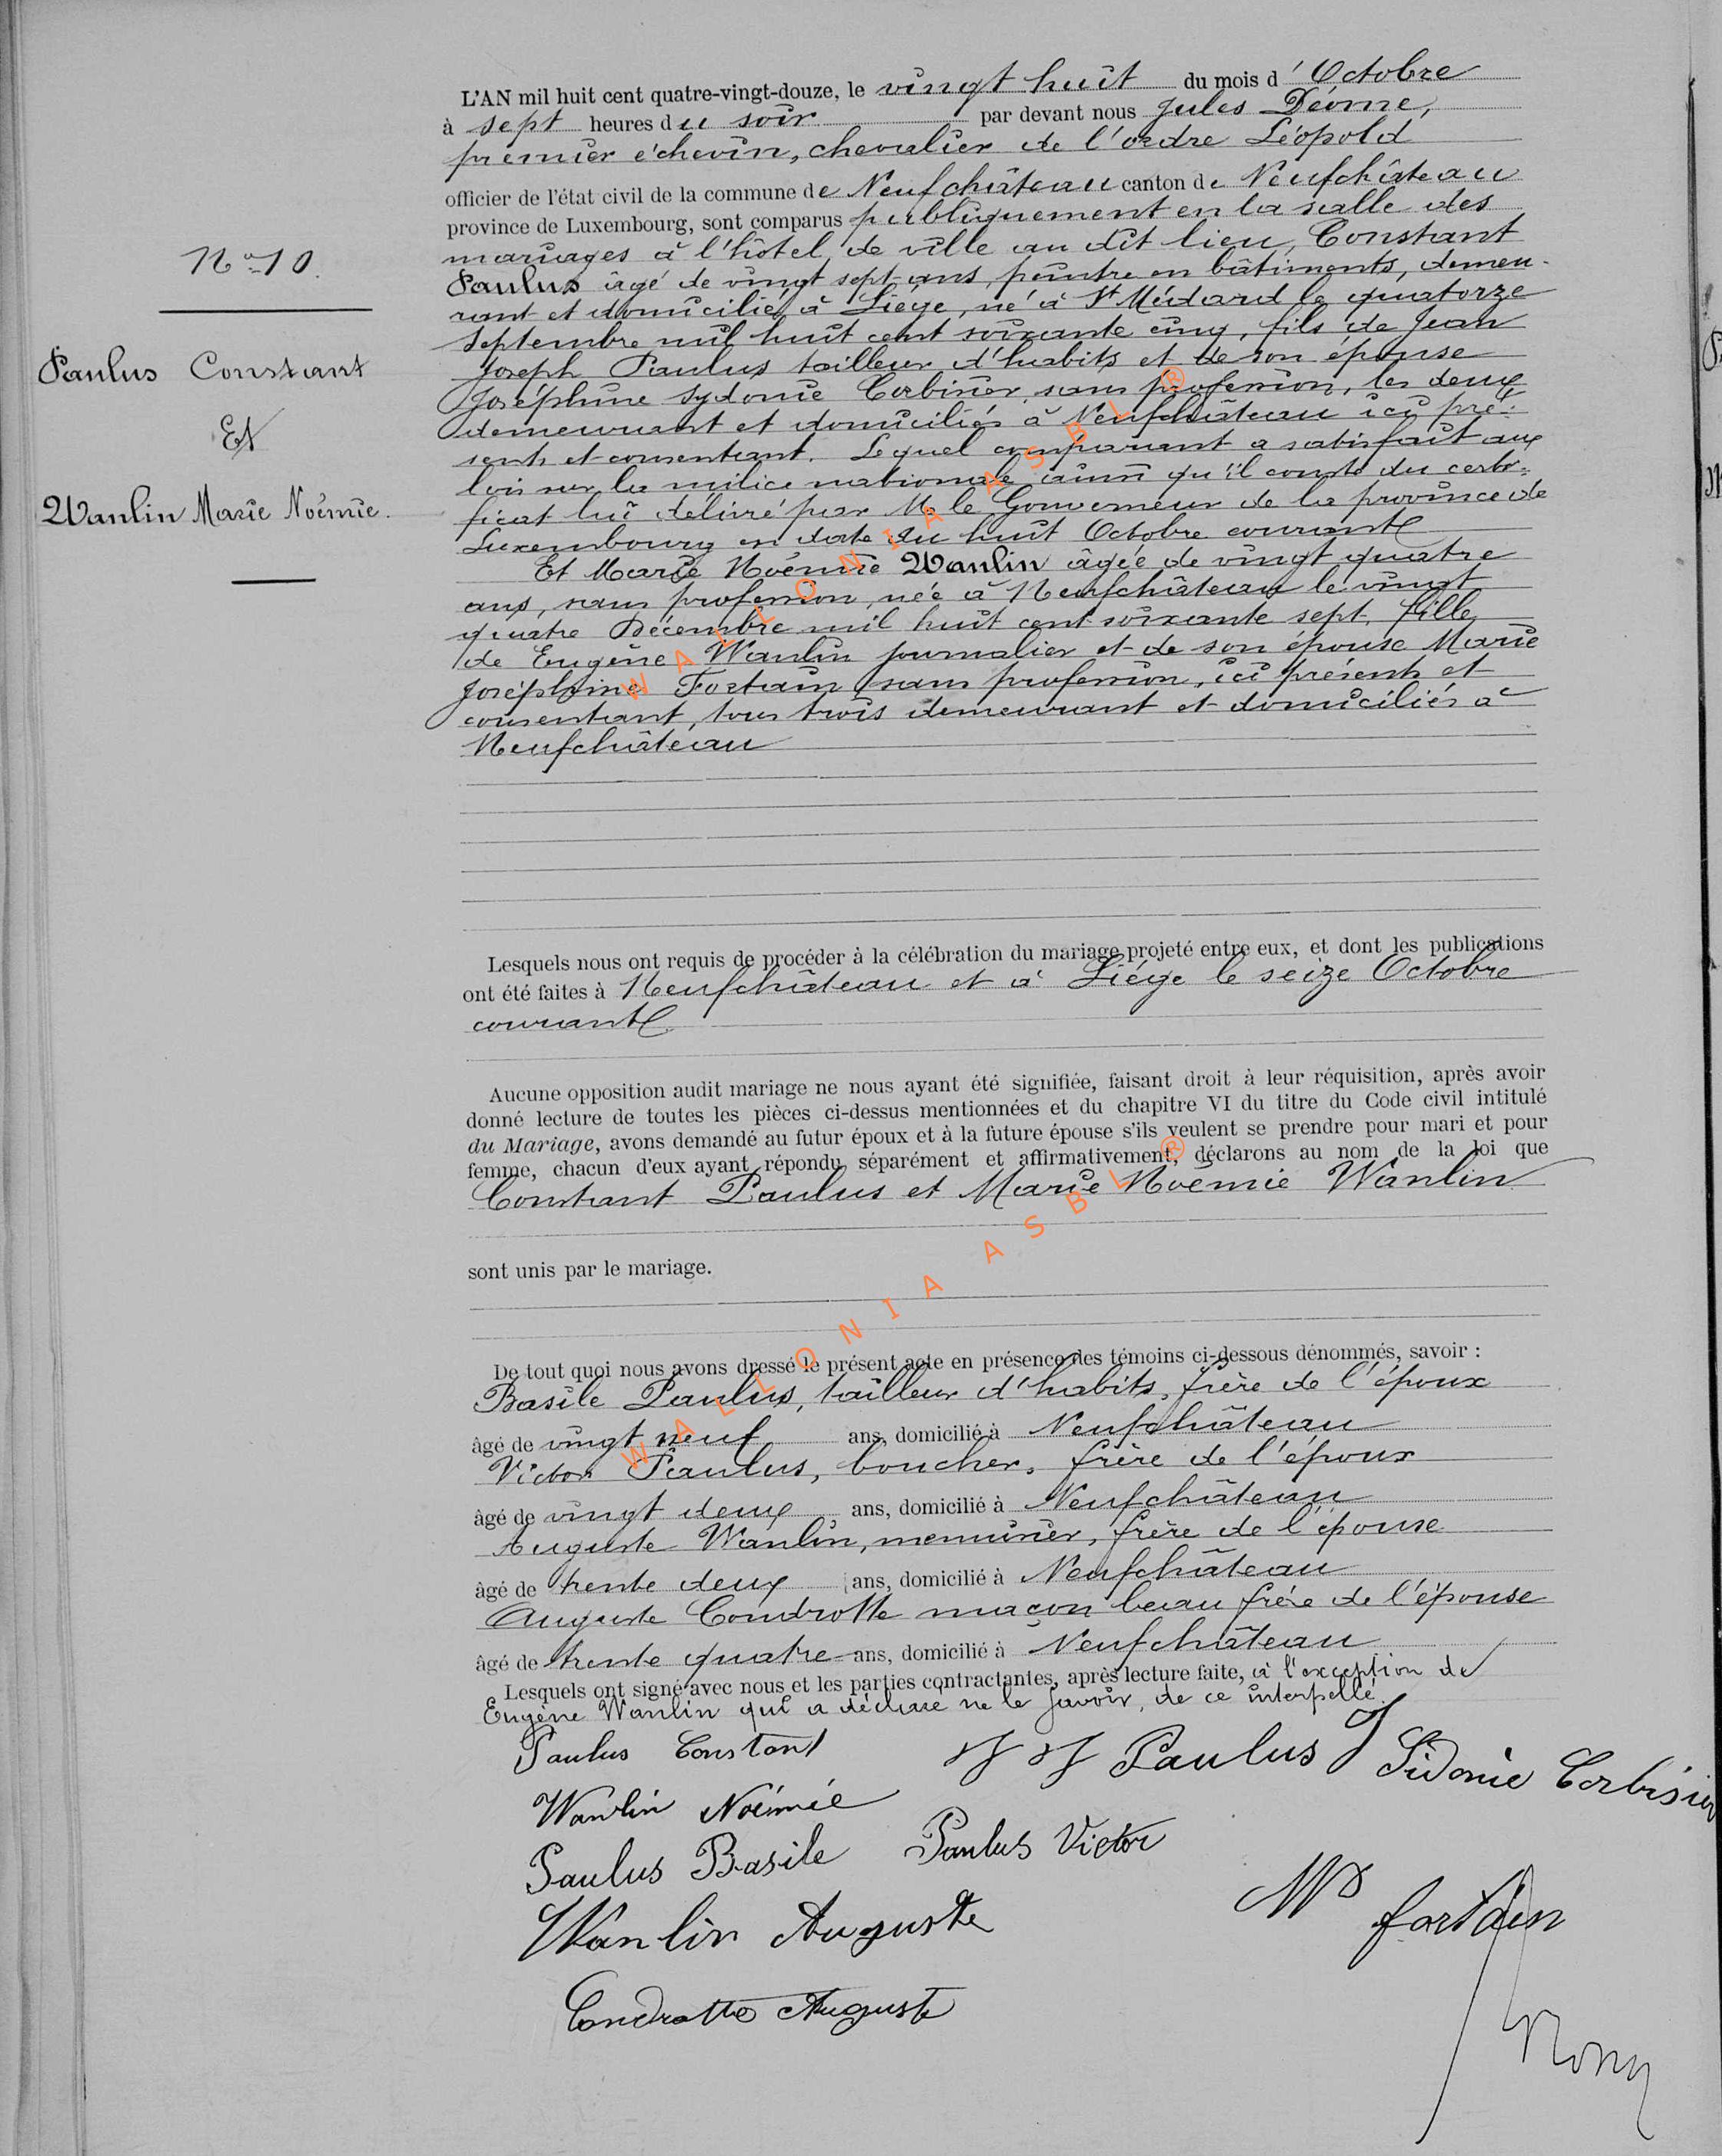 L'AN mil huit cent quatre-vingt-douze, le vingt huit du mois d'Octobre
à sept heures du soir par devant nous Jules Déome,
premier échevin, chevalier de l'ordre Léopold
officier de l'état civil de la commune de Neufchâteau canton de Neufchâteau
province de Luxembourg, sont comparus publiquement en la salle des
N° 10.
mariages à l'hôtel de ville au dit lieu, Constant
Paulus âgé de vingt sept ans, peintre en bâtiments, demeu-
rant et domicilié à Liége, né à St Médard le quatorze
Septembre mil huit cent soixante cinq, fils de Jean
Paulus Constant
Joseph Paulus tailleur d'habits et de son épouse
Joséphine Sydonie Corbisier, sans profession, les deux
demeurant et domiciliés à Neufchâteau ici pré-
Et
sents et consentant. Lequel comparant a satisfait aux
lois sur la milice nationale ainsi qu'il conste du certi-
ficat lui délivré par M. le Gouverneur de la province de
Wanlin Marie Noémie.
Luxembourg en date du huit Octobre courant
Et Marie Noémie Wanlin âgée de vingt quatre
ans, sans profession, née à Neufchâteau le vingt
quatre Décembre mil huit cent soixante sept, fille
de Eugène Wanlin journalier et de son épouse Marie
Joséphine Fortain sans profession, ici présents et
consentant, tous trois demeurant et domiciliés à
Neufchâteau
Lesquels nous ont requis de procéder à la célébration du mariage projeté entre eux, et dont les publications
ont été faites à Neufchâteau et à Liége le seize Octobre
courant.
Aucune opposition audit mariage ne nous ayant été signifiée, faisant droit à leur réquisition, après avoir
donné lecture de toutes les pièces ci-dessus mentionnées et du chapitre VI du titre du Code civil intitulé
du Mariage, avons demandé au futur époux et à la future épouse s'ils veulent se prendre pour mari et pour
femme, chacun d'eux ayant répondu séparément et affirmativement, déclarons au nom de la loi que
Constant Paulus et Marie Noémie Wanlin
sont unis par le mariage.
De tout quoi nous avons dressé le présent acte en présence des témoins ci-dessous dénommés, savoir :
Basile Paulus, tailleur d'habits, frère de l'époux
âgé de vingt neuf ans, domicilié à Neufchâteau
Victor Paulus, boucher, frère de l'époux
âgé de vingt deux ans, domicilié à Neufchâteau
Auguste Wanlin, menuisier, frère de l'épouse
âgé de trente deux ans, domicilié à Neufchâteau
Auguste Condrotte maçon beau frère de l'épouse
âgé de trente quatre ans, domicilié à Neufchâteau
Lesquels ont signé avec nous et les parties contractantes, après lecture faite, à l'exception de
Eugène Wanlin qui a déclaré ne le savoir, de ce interpellé.
Paulus Constant
JJ Paulus
Sidonie Corbisier
Wanlin Noémie
Paulus Basile
Paulus Victor
Wanlin Auguste
fortain
Condrotte Auguste
WALLONIA ASBL ®
WALLONIA ASBL ®